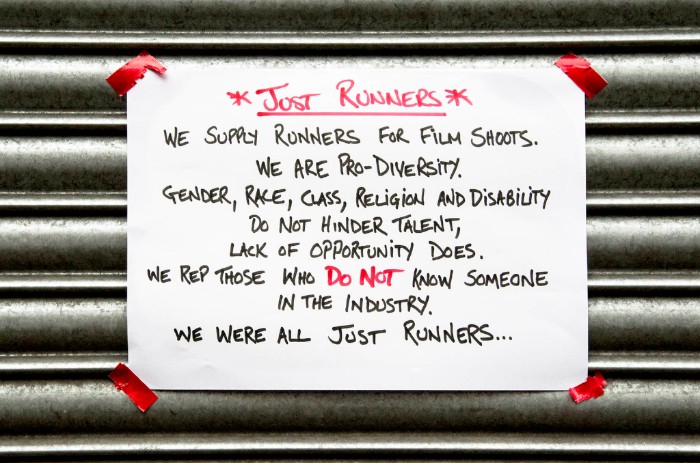 * JUST RUNNERS *
WE SUPPLY RUNNERS FOR FILM SHOOTS.
WE ARE PRO-DIVERSITY.
GENDER, RACE, CLASS, RELIGION AND DISABILITY
DO NOT HINDER TALENT,
LACK OF OPPORTUNITY DOES.
WE REP THOSE WHO DO NOT KNOW SOMEONE
IN THE INDUSTRY.
WE WERE ALL JUST RUNNERS...